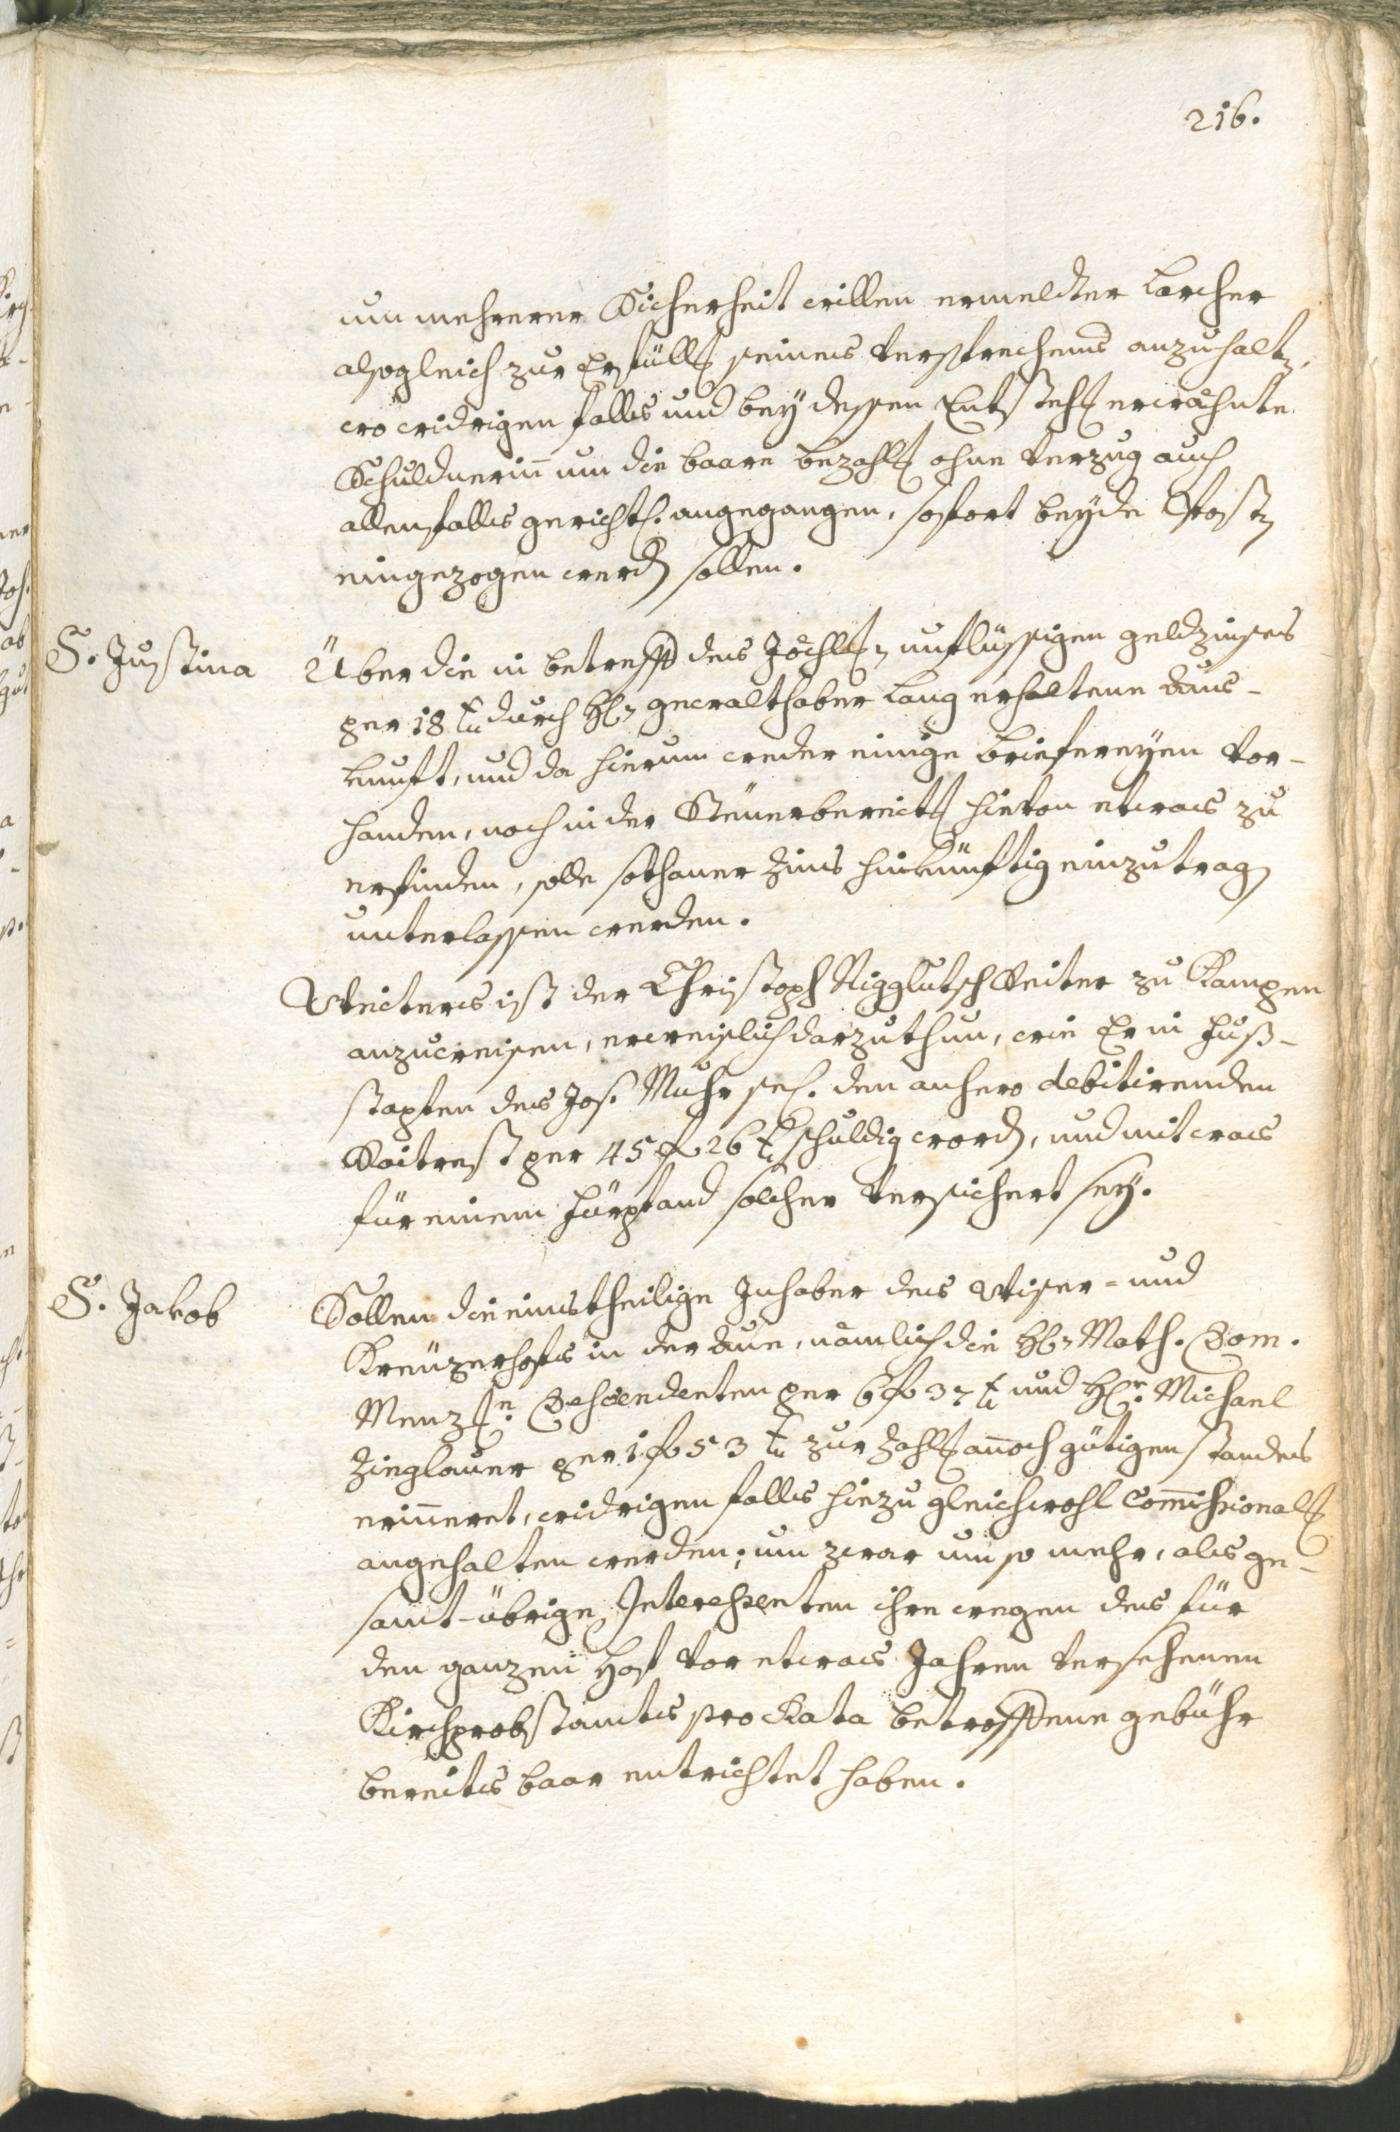 216.
um mehrerer Sicherheit willen ermeldter Larcher
alsogleich zur Erfüllg seines Versprechens anzuhaltn,
wo widrigen falls und beÿ dessen Entstehg erwähnte
Schuldnerin um die baare bezahlg ohne Verzug auch
allenfalls gerichtl. angegangen, sofort beÿde Postn
eingezogen werdn sollen.
S. Justina
Über die in betreff des Jöchlischn unflüssigen geldzinses
per 18 xr durch Hln gewalthaber Lang erhaltene Aus-
kunft, und da hierum weder einige briefereÿen vor-
handen, noch in der Steuerbereitg hievon etwas zu
erfinden, solle sothaner Zins hinkünftig einzutragn
unterlassen werden.
Weiters ist der Christoph Rigglutsch Veiter zu Kampen
anzuweisen, erweislich darzuthun, wie Er in fuß-
stapfen des Jos. Muhr sel. den anhero debitirenden
Raitrest per 45 f 26 xr schuldig wordn, und mit was
für einem fürpfand solcher versichert seÿ.
S. Jakob
Sollen die einstheilige Inhaber des Wiser- und
Kreuzerhofs in der Aue, nämlich die Hln Math. Dom.
Menzschen Descendenten per 6 f 37 xr und Hl: Michael
Zieglauer per 1 f 53 xr zur Zahlg annoch gütigen standes
erinneret, widrigen falls hiezu gleichwohl Commissionalr
angehalten werden; um zwar um so mehr, als ge-
samt-übrige Interessenten ihre wegen des für
den ganzen Hof vor etwas Jahren versehenen
Kirchprobstamts pro Rata betroffene gebühr
bereits baar entrichtet haben.